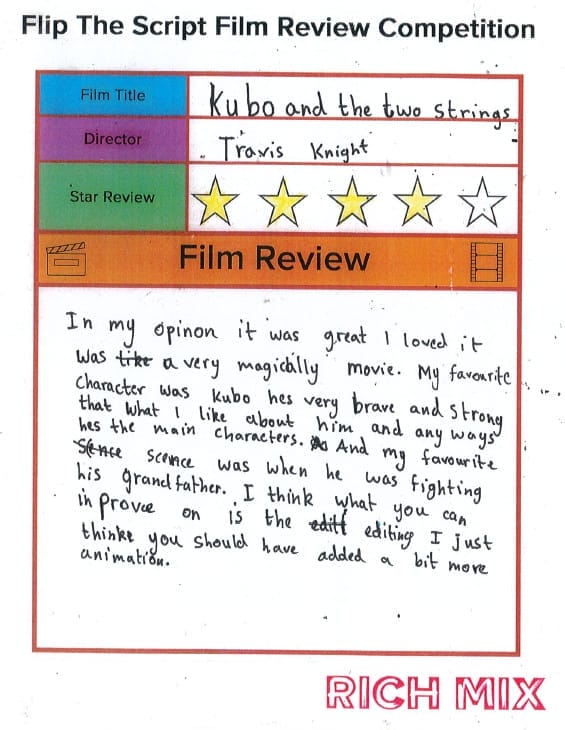 Flip The Script Film Review Competition
Film Title
Kubo and the two strings
Director
Travis Knight
Star Review
Film Review
In my opinon it was great I loved it
was like a very magiclly movie. My favourite
character was Kubo hes very brave and strong
that what I like about him and any ways
hes the main characters. And my favourite
Sence scence was when he was fighting
his grandfather. I think what you can
inprove on is the editt editing I just
thinke you should have added a bit more
animation.
RICH MIX